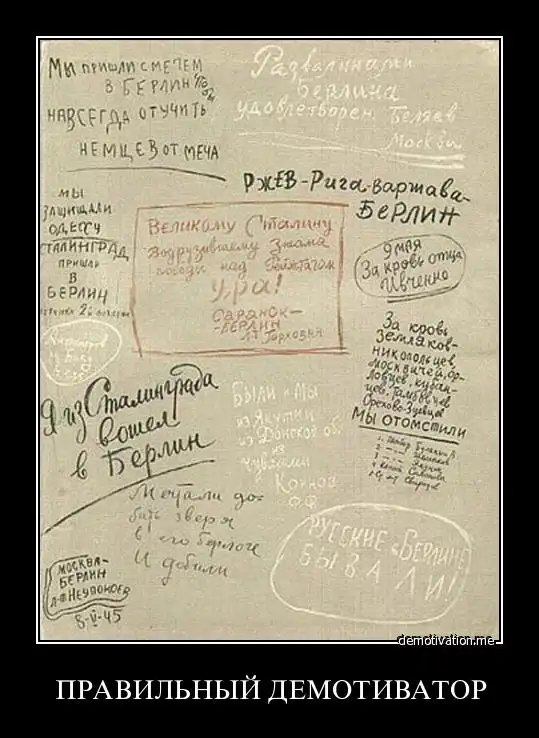 Мы пришли с мечем
в Берлин
навсегда отучить
немцев от меча
Развалинами
Берлина
удовлетворен. Беляев
Москва
Ржев-Рига-Варшава-
Берлин
мы
защищали
Одессу
Сталинград
пришли
в
Берлин
Великому Сталину
водрузившему Знамя
победы над Рейхстагом
Ура!
Саранск-
-Берлин
9 мая
За кровь отца
Ивченко
За кровь
земляков-
никопольцев,
москвичей, ор-
ловцев, кубан-
цев, тамбовцев
Орехово-Зуевцев
мы отомстили
Я из Сталинграда
вошел
в Берлин
Были и мы
из Якутии
из Донской об.
из Чувашии
Мечтали до-
бить зверя
в его берлоге
И добили
Русские в Берлине
бывали!
Москва-
Берлин
8-V-45
demotivation.me
ПРАВИЛЬНЫЙ ДЕМОТИВАТОР